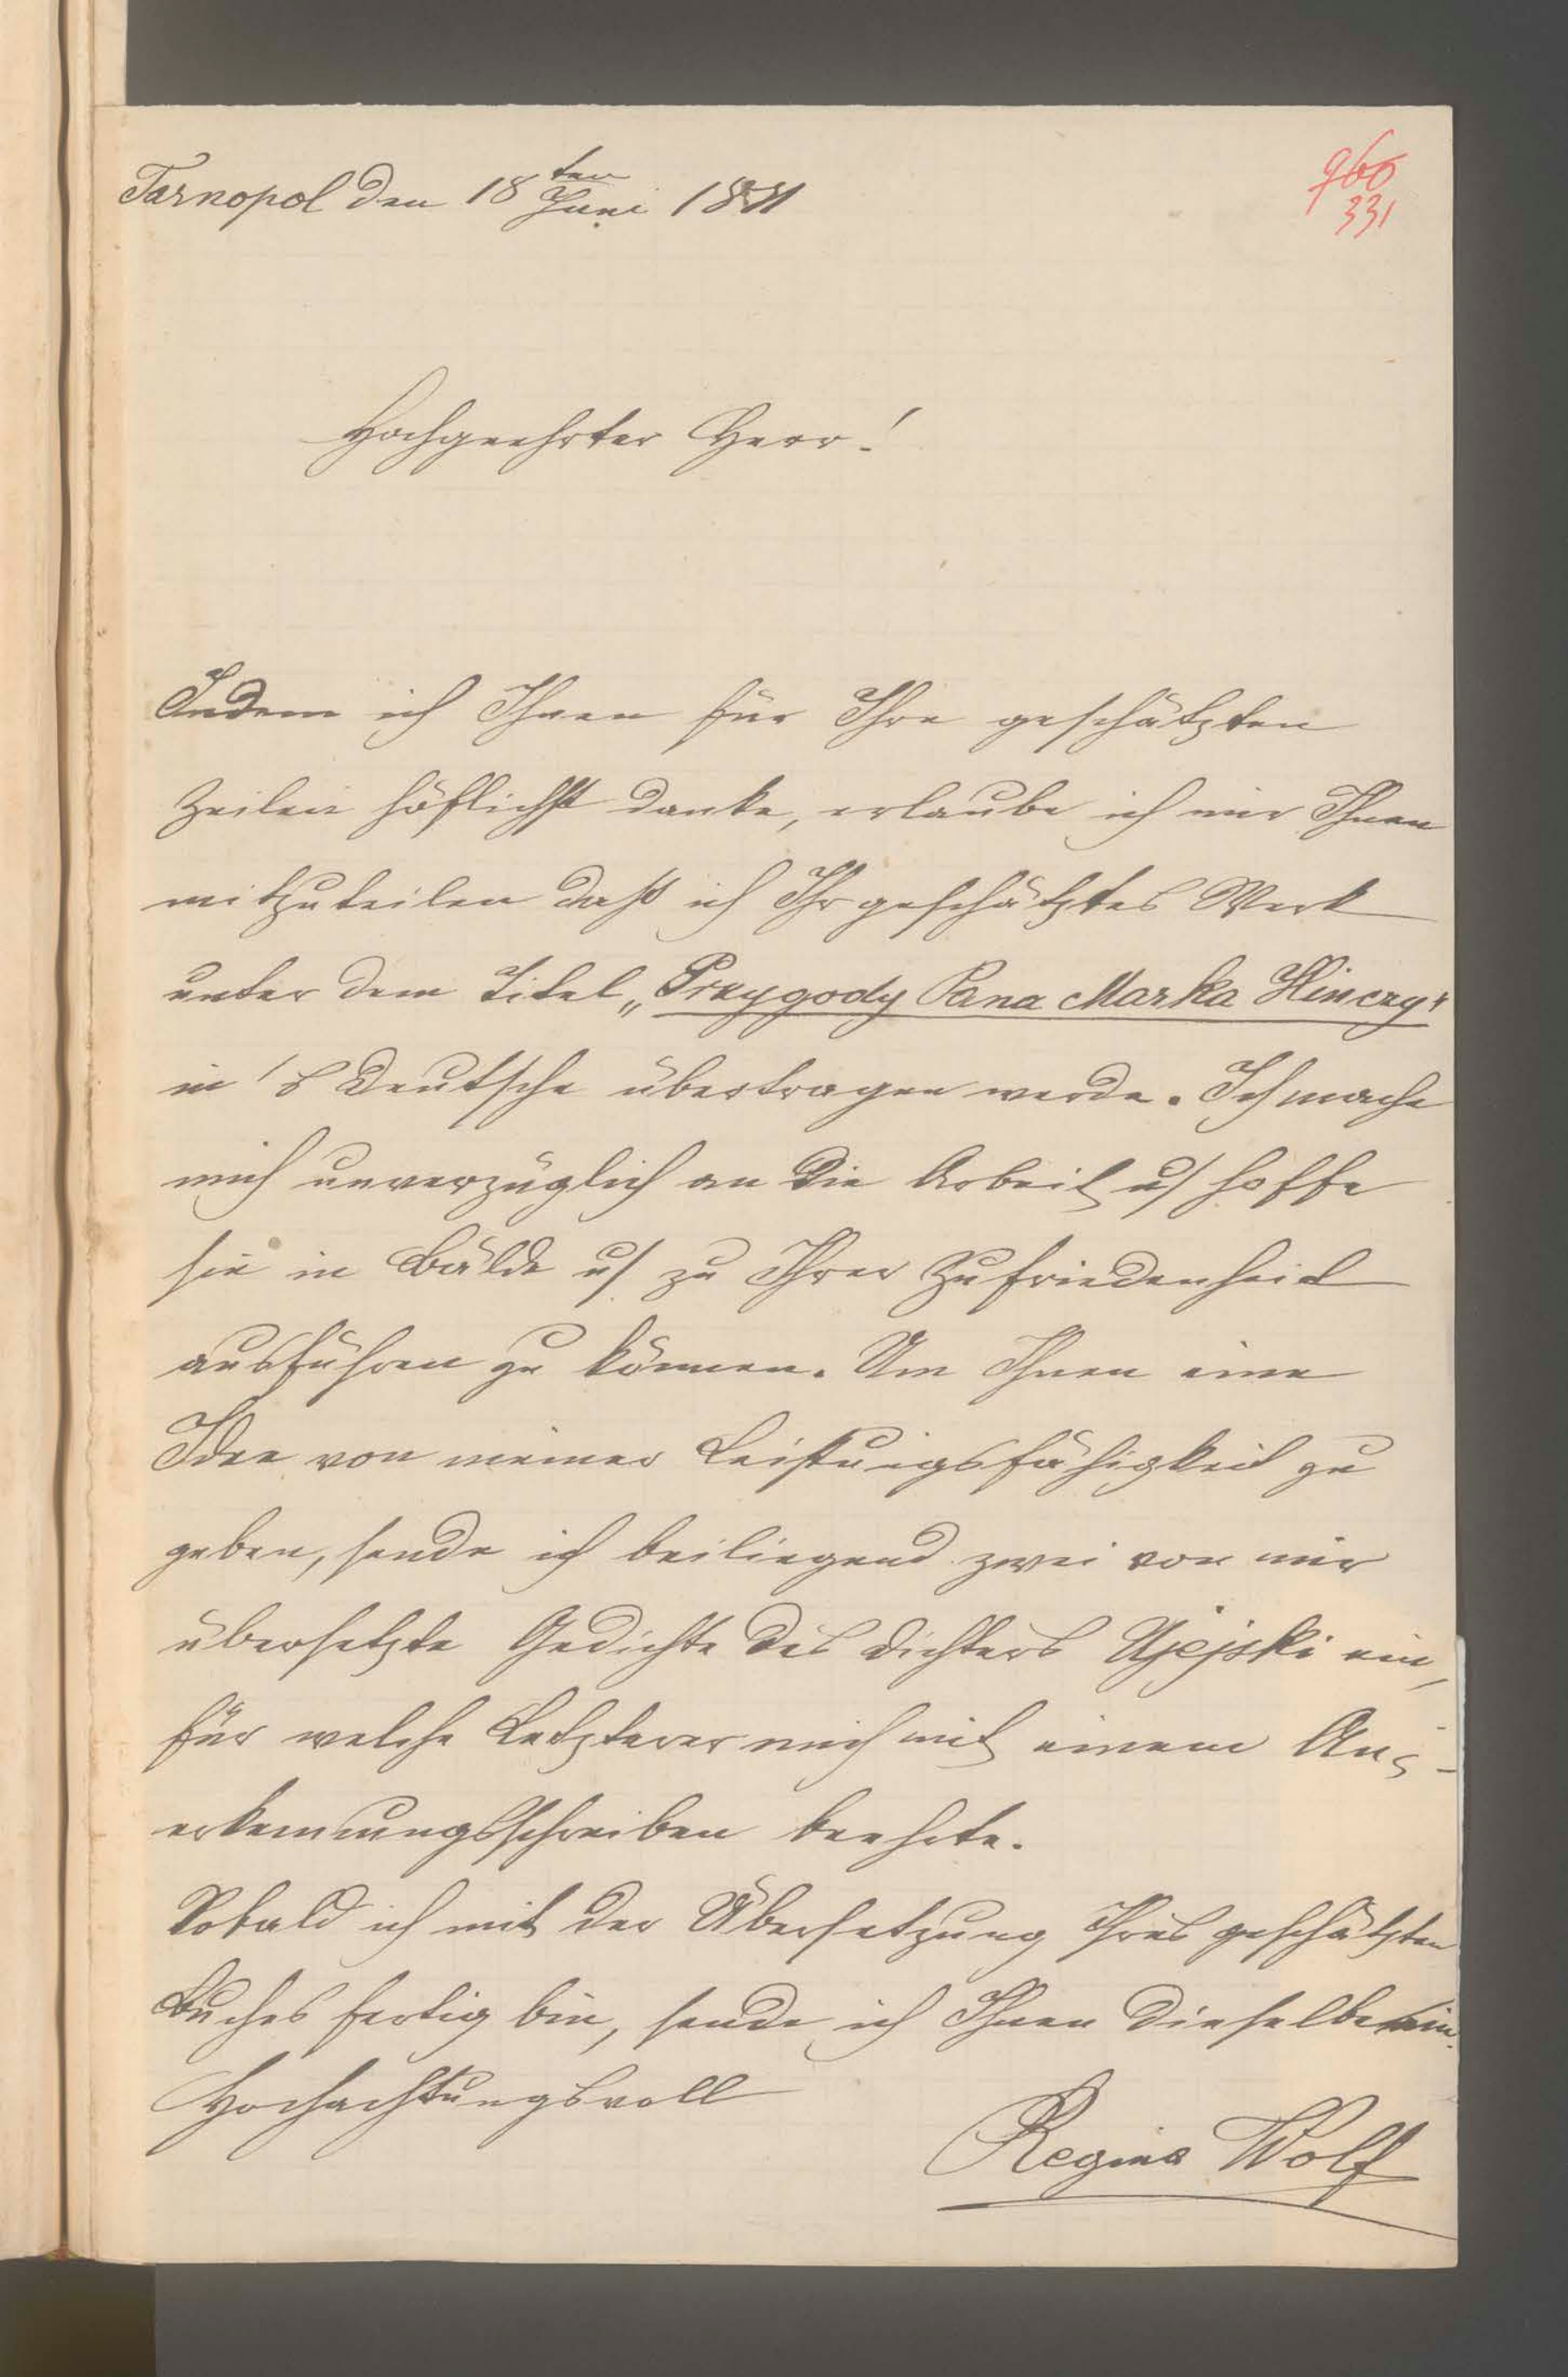 Tarnopol den 18ten Juni 1881
960
331
Hochgeehrter Herr!
Indem ich Ihnen für Ihre geschätzten
Zeilen höflichst danke, erlaube ich mir Ihnen
mitzuteilen daß ich Ihr geschätztes Werk
unter dem Titel „Przygody Pana Marka Hinczy"
in's Deutsche übertragen werde. Ich mache
mich unverzüglich an die Arbeit u/ hoffe
sie in Bälde u/ zu Ihrer Zufriedenheit
ausführen zu können. Um Ihnen eine
Idee von meiner Leistungsfähigkeit zu
geben, sende ich beiliegend zwei von mir
übersetzte Gedichte des Dichters Ujejski ein,
für welche Letzterer mich mit einem An-
erkennungsschreiben beehrte.
Sobald ich mit der Übersetzung Ihres geschätzten
Buches fertig bin, sende ich Ihnen dieselbe ein.
Hochachtungsvoll
Regina Wolf